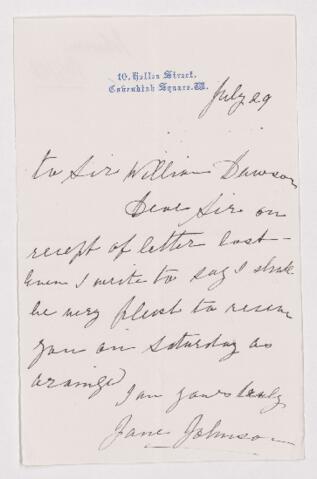 10, Hollos Street,
Cavendish Square. W.
July 29
to Sir William Dawson
Dear Sir on
recept of letter last
Even I write to say I shal
be very pleast to receive
you on Saturday as
arainged
I am yours truly
Jane Johnson